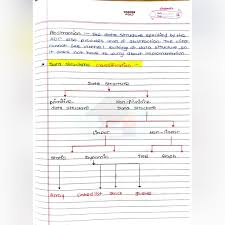 TOPPER WORLD
Abstraction :- The data structure specified by the
ADT also provides level of abstraction. The client
cannot see internal working of data structure so
it does not have to worry about implementation.
Data Structure Classification :-
Data Structure
primitive Non-primitive
data structure Data structure
Linear Non-linear
Static Dynamic Tree Graph
Array Linked list Stack Queue